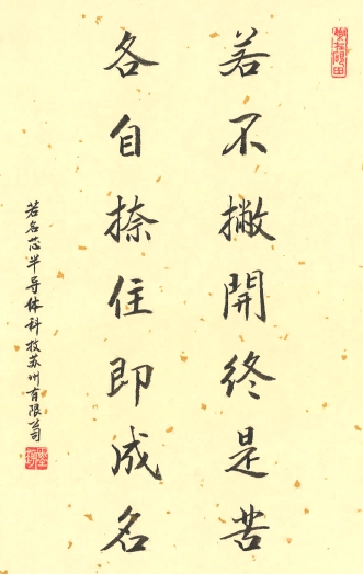 若不撇開終是苦
各自捺住即成名
若名芯半导体科技苏州有限公司